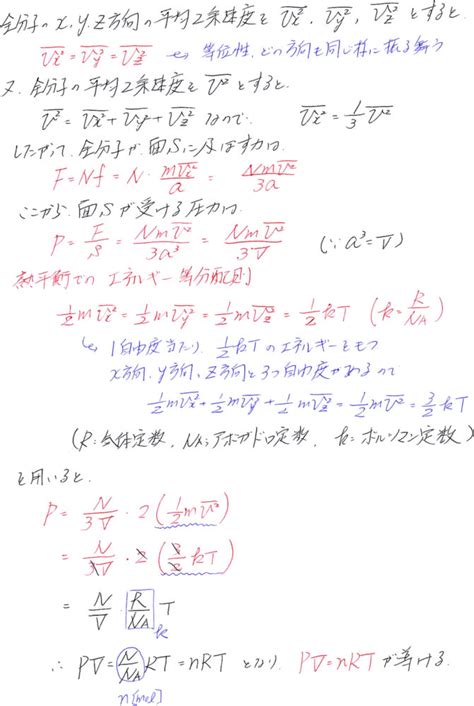 全分子のx,y,z方向の平均2乗速度を $\overline{v_x^2}$, $\overline{v_y^2}$, $\overline{v_z^2}$ とすると、
$\overline{v_x^2} = \overline{v_y^2} = \overline{v_z^2}$ ↳ 等位性、どの方向も同じ様に振る舞う
又、全分子の平均2乗速度を $\overline{v^2}$ とすると、
$\overline{v^2} = \overline{v_x^2} + \overline{v_y^2} + \overline{v_z^2}$ なので $\overline{v_x^2} = \frac{1}{3}\overline{v^2}$
したがって、全分子が、面Sに及ぼす力は、
$F = Nf = N \cdot \frac{m\overline{v_x^2}}{a} = \frac{Nm\overline{v^2}}{3a}$
ここから、面Sが受ける圧力は、
$P = \frac{F}{S} = \frac{Nm\overline{v^2}}{3a^3} = \frac{Nm\overline{v^2}}{3V}$ (∵ $a^3 = V$)
熱平衡での エネルギー等分配則
$\frac{1}{2}m\overline{v_x^2} = \frac{1}{2}m\overline{v_y^2} = \frac{1}{2}m\overline{v_z^2} = \frac{1}{2}kT$ ($k = \frac{R}{N_A}$)
↳ 1自由度当たり、$\frac{1}{2}kT$ のエネルギーをもつ
x方向、y方向、z方向と3つ自由度があるので
$\frac{1}{2}m\overline{v_x^2} + \frac{1}{2}m\overline{v_y^2} + \frac{1}{2}m\overline{v_z^2} = \frac{1}{2}m\overline{v^2} = \frac{3}{2}kT$
(R:気体定数、$N_A$:アボガドロ定数、k=ボルツマン定数)
を用いると、
$P = \frac{N}{3V} \cdot 2\left(\frac{1}{2}m\overline{v^2}\right)$
$= \frac{N}{3V} \cdot 2\left(\frac{3}{2}kT\right)$
$= \frac{N}{V} \cdot \frac{R}{N_A}T$
k
∴ $PV = \frac{N}{N_A}RT = nRT$ となり、$PV = nRT$ が導ける。
n[mol]